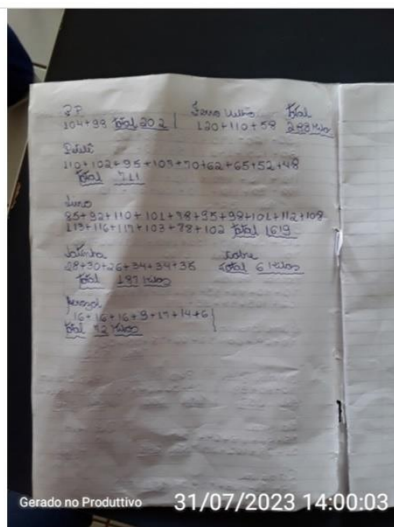 104+99 Total 202
Ferro Total
120+110+58 288 Kilos
110+102+95+107+70+62+65+52+48
Total 711
85+92+110+101+98+95+98+101+112+108
113+116+117+103+78+102 Total 1619
Latinha
28+30+26+34+34+35
Total 187 Kilos
Cobre
Total 6 Kilos
Aerosol
16+16+16+9+17+14+6
Total 92 Kilos
Gerado no Produttivo 31/07/2023 14:00:03